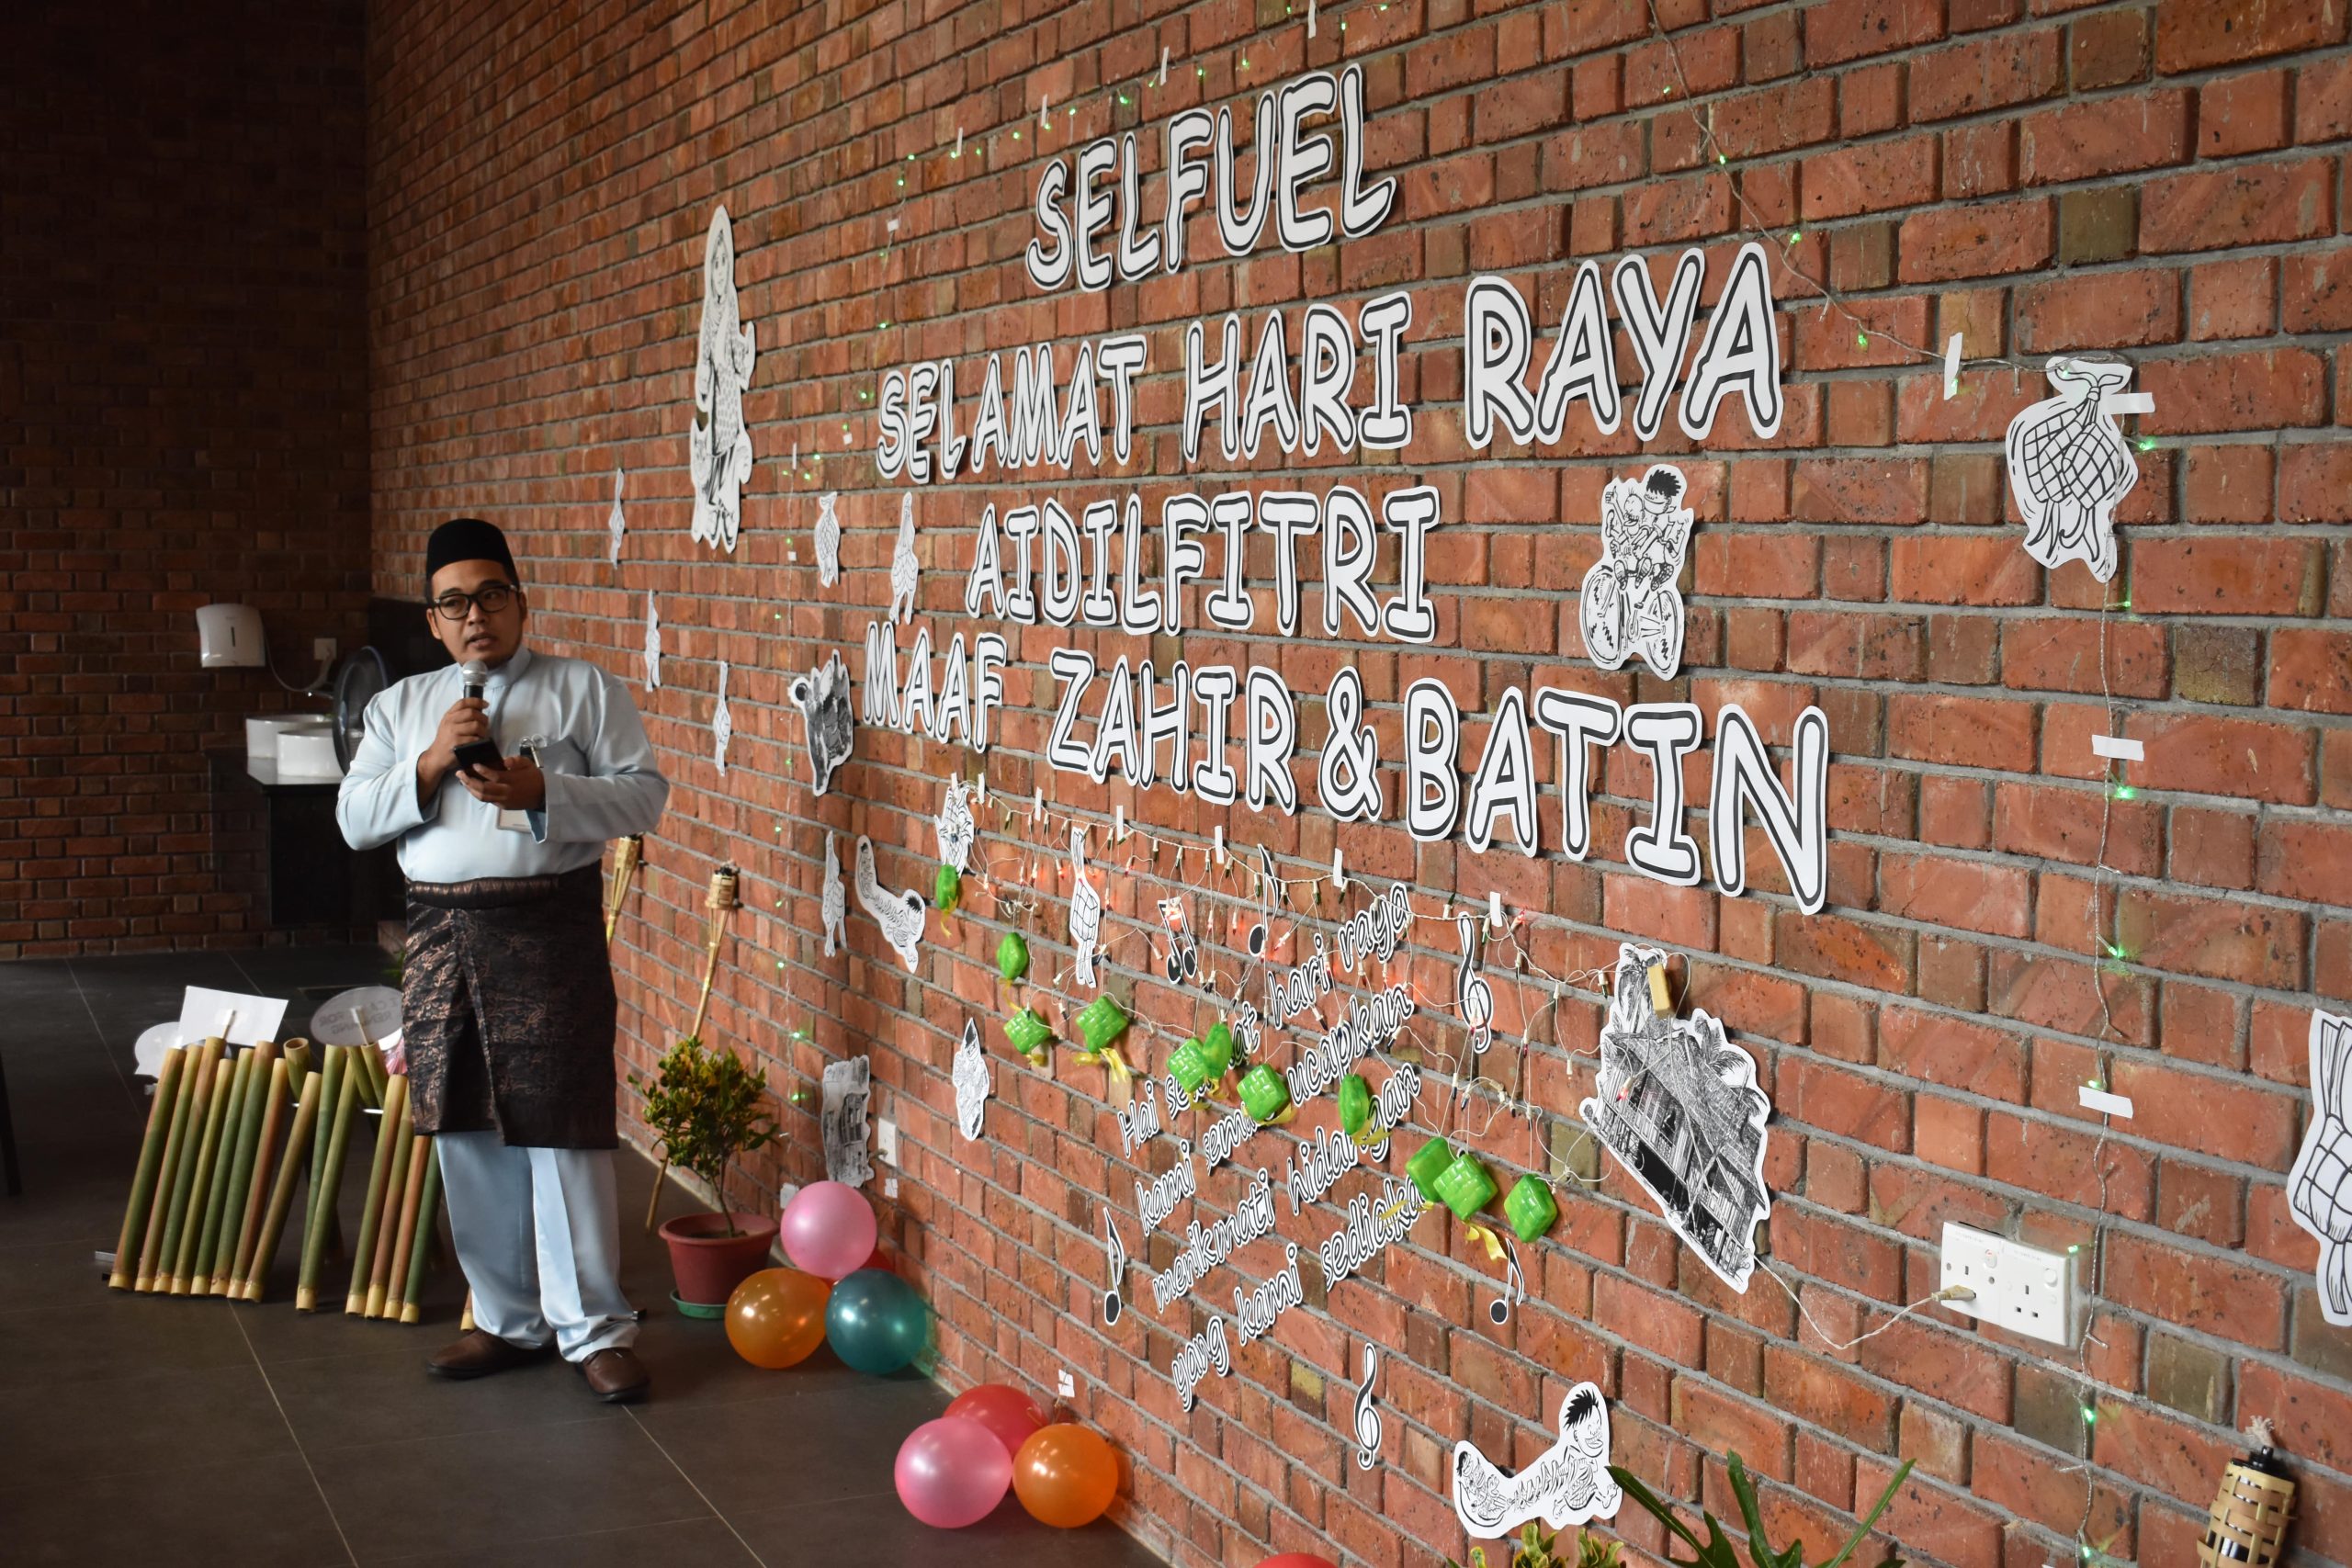 SELFUEL
SELAMAT HARI RAYA
AIDILFITRI
MAAF ZAHIR & BATIN
Hai hari raya
kami ucapkan
menikmati hidangan
yang kami